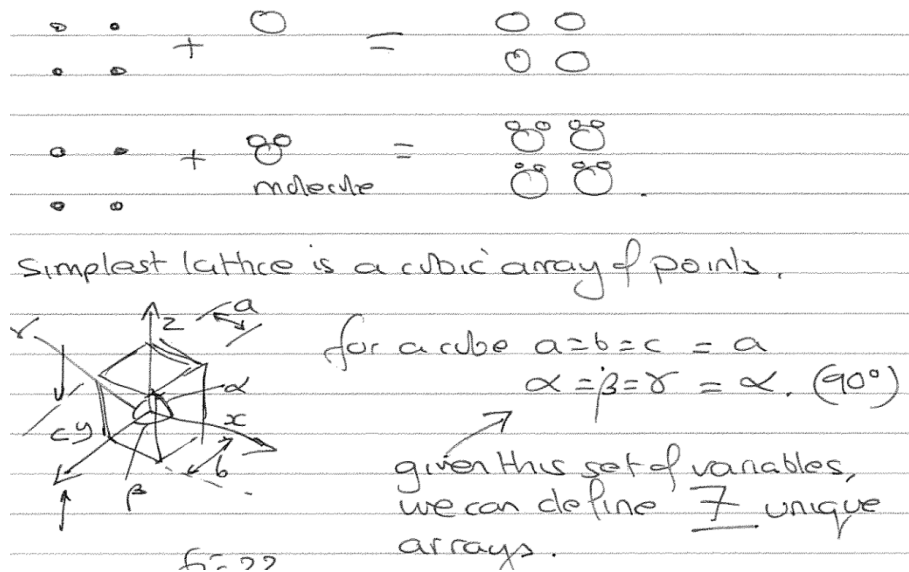 + =
+ =
molecule
simplest lattice is a cubic array of points.
z a
for a cube a=b=c = a
α α = β = γ = α. (90°)
x
c y
b
given this set of variables,
β
we can define 7 unique
arrays.